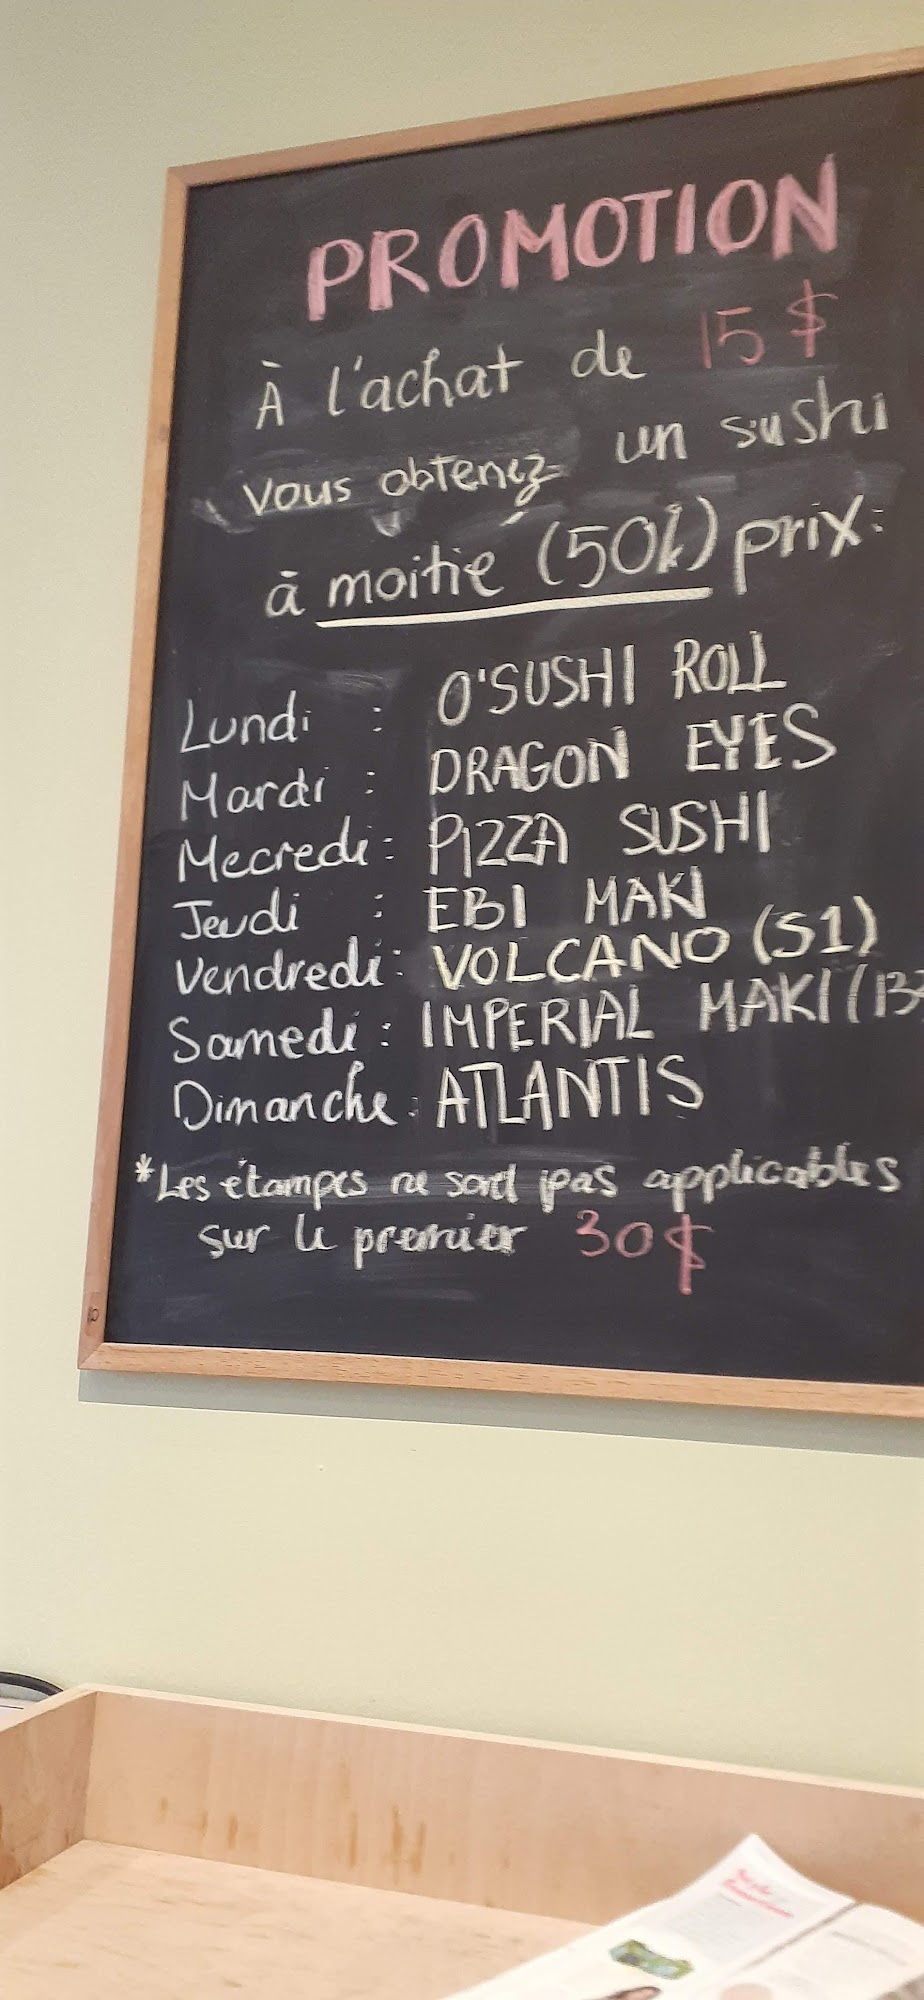 PROMOTION
À l'achat de 15$
vous obtenez un sushi
à moitié (50%) prix:
Lundi : O'SUSHI ROLL
Mardi : DRAGON EYES
Mecredi: PIZZA SUSHI
Jeudi : EBI MAKI
Vendredi: VOLCANO (S1)
Samedi: IMPERIAL MAKI
Dimanche: ATLANTIS
*Les étampes ne sont pas applicables
sur le premier 30$